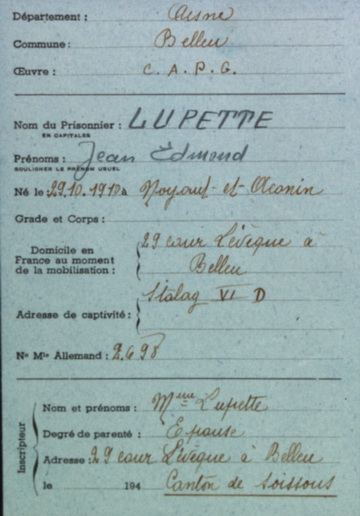 Département : Aisne
Commune : Belleu
Œuvre : C. A. P. G.
Nom du Prisonnier : LUPETTE
EN CAPITALES
Prénoms : Jean Edmond
SOULIGNER LE PRÉNOM USUEL
Né le 29.10.1910 à Noyant-et-Aconin
Grade et Corps :
Domicile en
France au moment
de la mobilisation :
29 cour Lévêque à
Belleu
Stalag VI D
Adresse de captivité :
N° Mle Allemand : 2698
Inscripteur
Nom et prénoms : Mme Lupette
Degré de parenté : Epouse
Adresse : 29 cour Lévêque à Belleu
le 194 Canton de Soissons